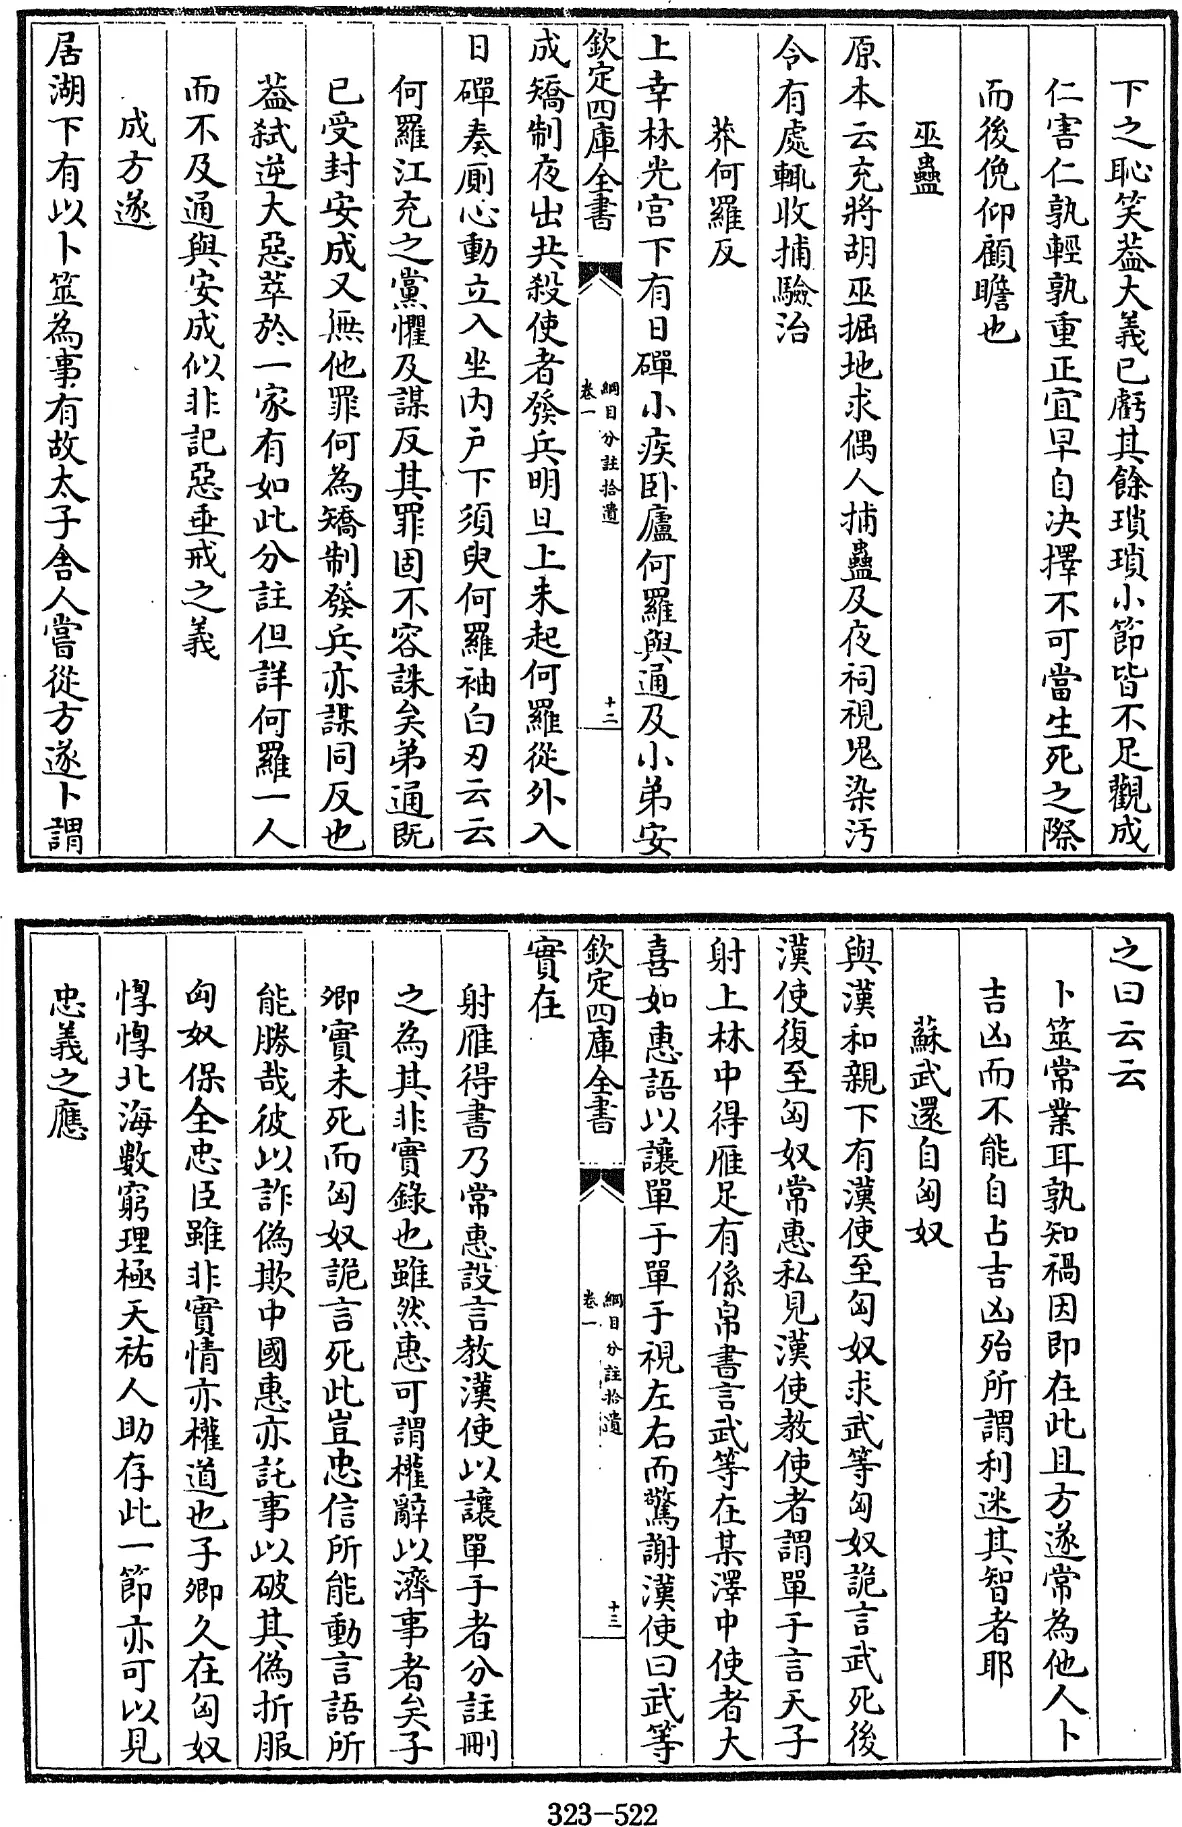 下之恥笑葢大義已虧其餘瑣瑣小節皆不足觀成
仁害仁孰輕孰重正宜早自決擇不可當生死之際
而後俛仰顧瞻也
巫蠱
原本云充將胡巫掘地求偶人捕蠱及夜祠視鬼染汚
令有處輒收捕驗治
莽何羅反
上幸林光宫下有日磾小疾卧廬何羅與通及小弟安
欽定四庫全書
綱目分註拾遺
卷一
十二
成矯制夜出共殺使者發兵明旦上未起何羅從外入
日磾奏厠心動立入坐内户下須臾何羅袖白刃云云
何羅江充之黨懼及謀反其罪固不容誅矣弟通既
已受封安成又無他罪何為矯制發兵亦謀同反也
葢弑逆大惡萃於一家有如此分註但詳何羅一人
而不及通與安成似非記惡垂戒之義
成方遂
居湖下有以卜筮為事有故太子舍人嘗從方遂卜謂
之曰云云
卜筮常業耳孰知禍因即在此且方遂常為他人卜
吉凶而不能自占吉凶殆所謂利迷其智者耶
蘇武還自匈奴
與漢和親下有漢使至匈奴求武等匈奴詭言武死後
漢使復至匈奴常惠私見漢使教使者謂單于言天子
射上林中得雁足有係帛書言武等在某澤中使者大
喜如惠語以讓單于單于視左右而驚謝漢使曰武等
欽定四庫全書
綱目分註拾遺
卷一
十三
實在
射雁得書乃常惠設言教漢使以讓單于者分註刪
之為其非實錄也雖然惠可謂權辭以濟事者矣子
卿實未死而匈奴詭言死此豈忠信所能動言語所
能勝哉彼以詐偽欺中國惠亦託事以破其偽折服
匈奴保全忠臣雖非實情亦權道也子卿久在匈奴
惸惸北海數窮理極天祐人助存此一節亦可以見
忠義之應
323-522